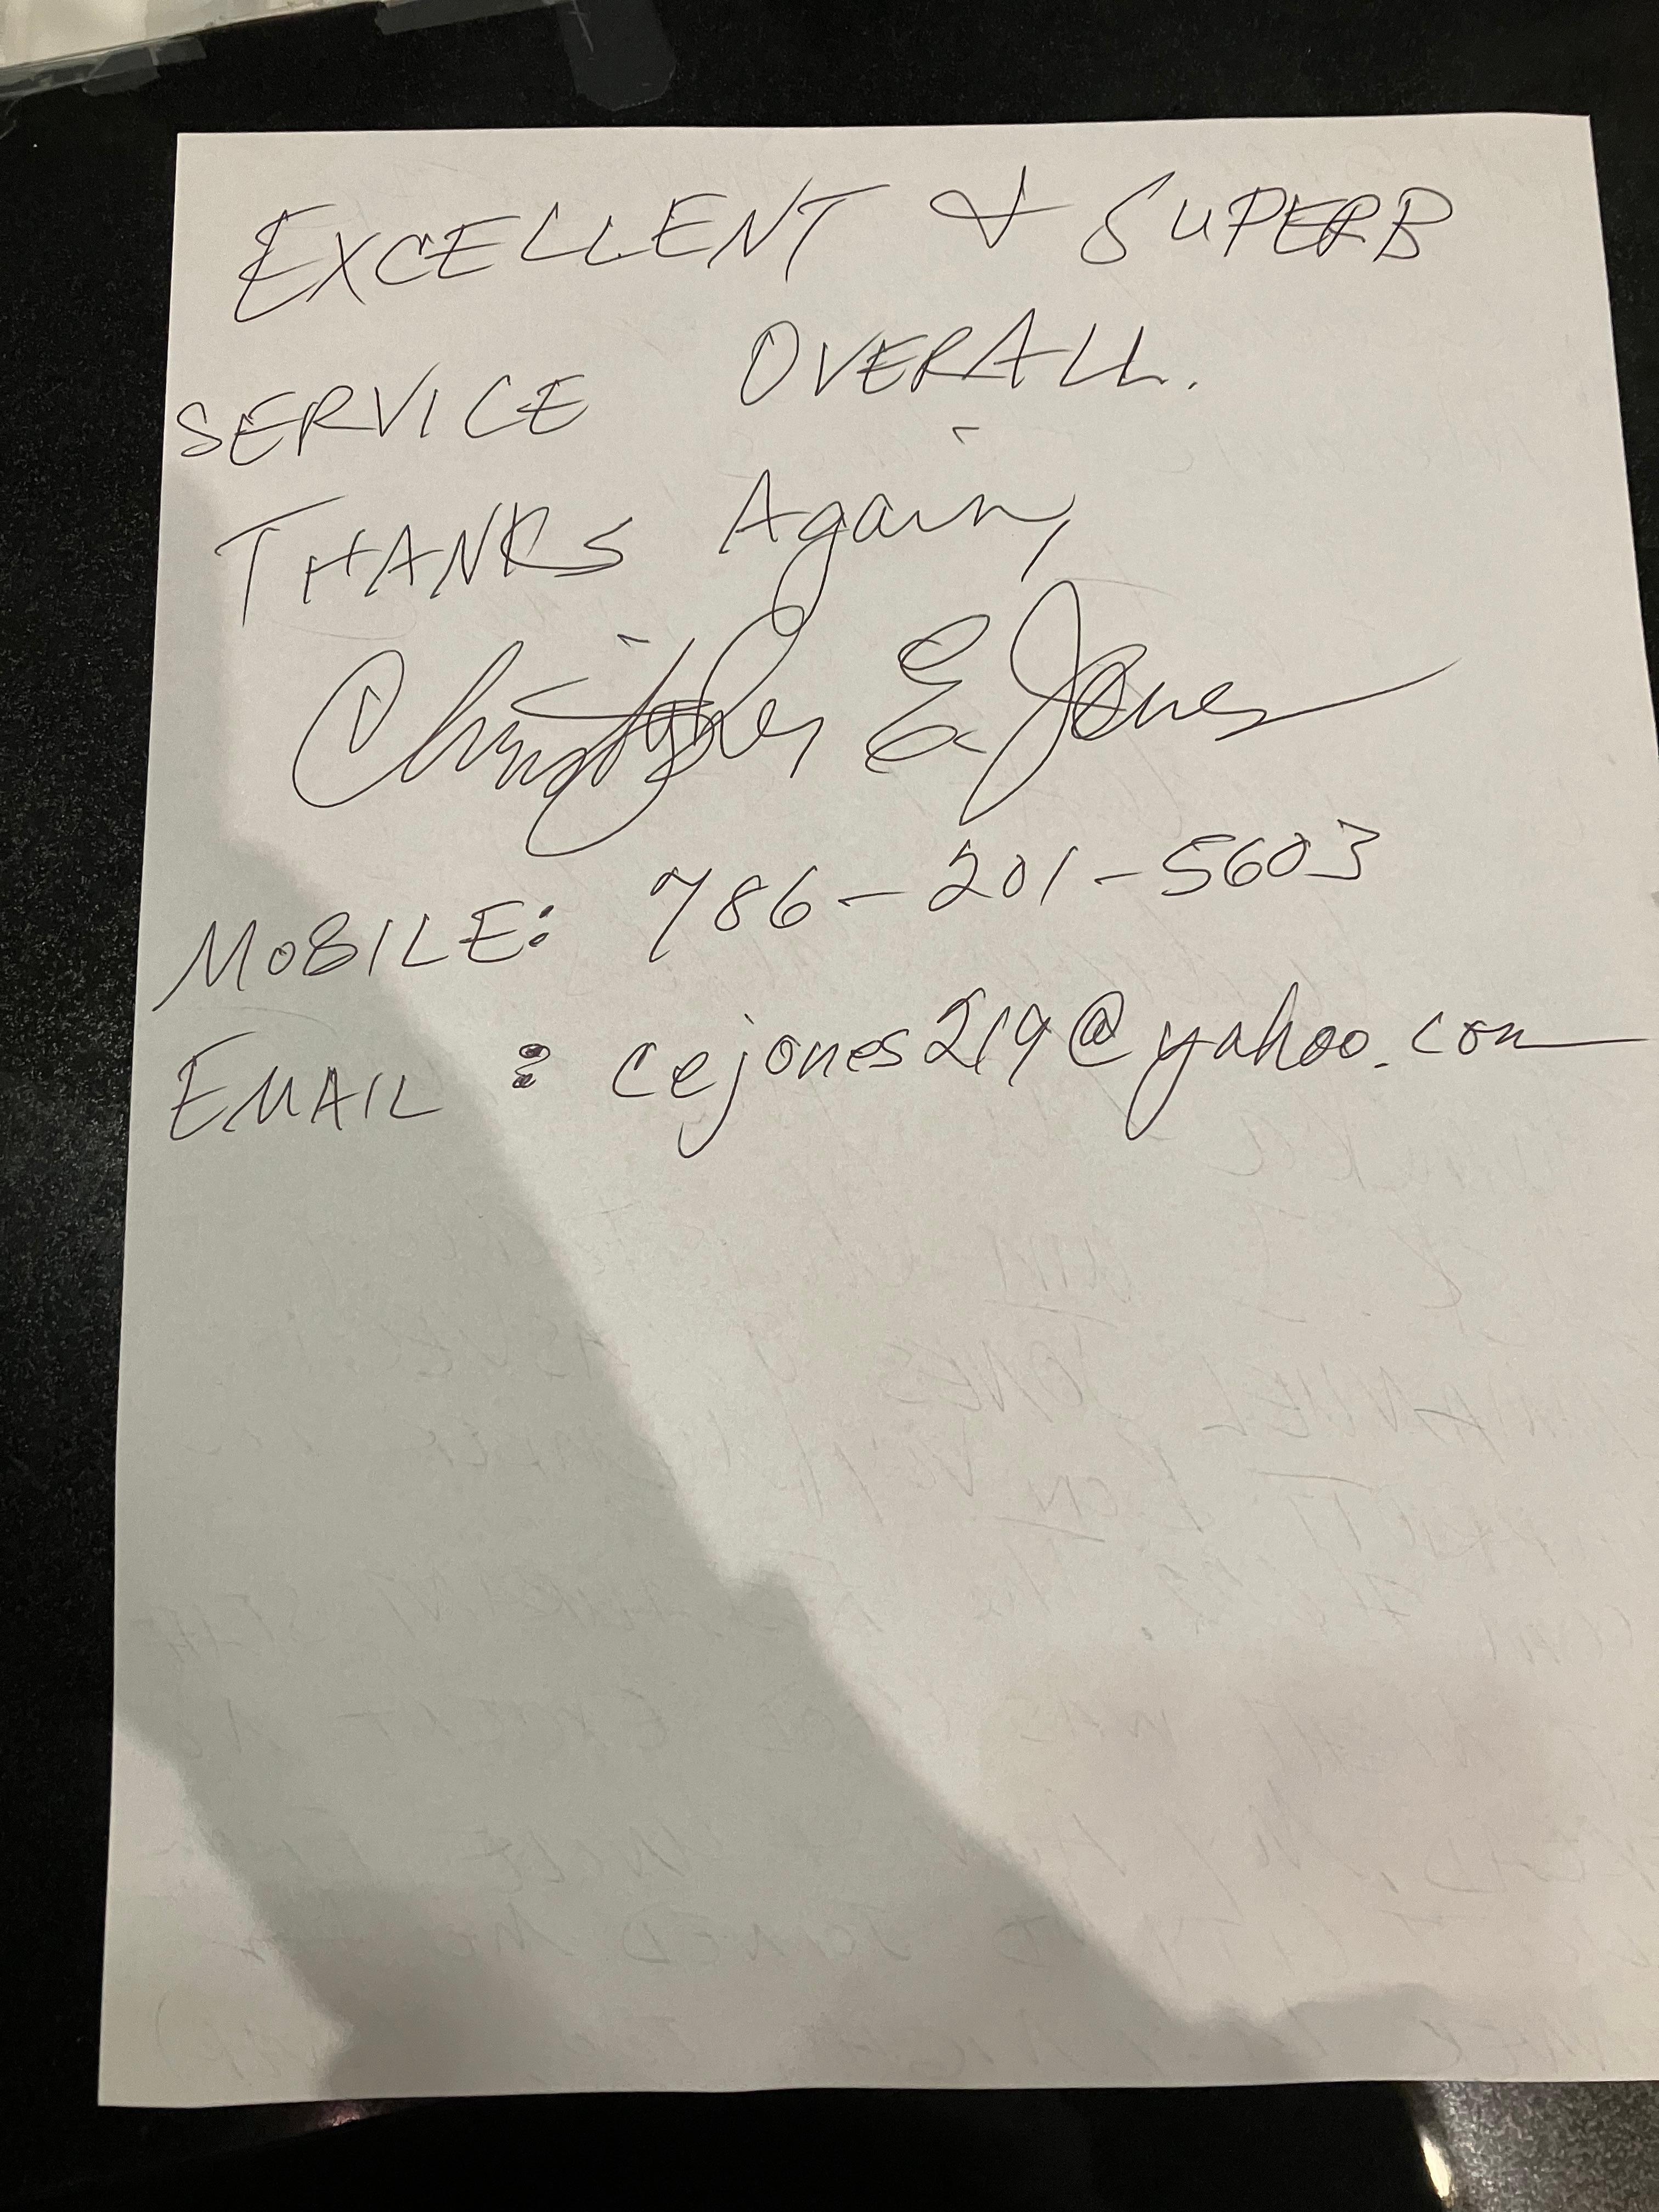 EXCELLENT & SUPERB
SERVICE OVERALL.
THANKS Again,
Christopher E. Jones
MOBILE: 786-201-5603
EMAIL: cejones219@yahoo.com